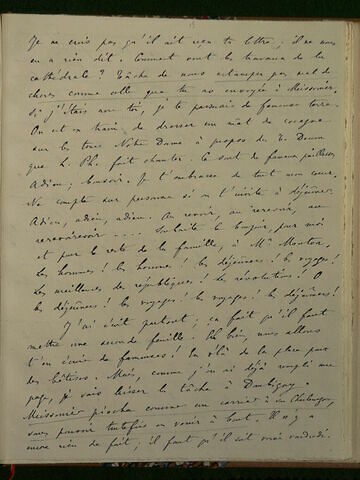 Je ne crois pas qu'il ait reçu ta lettre; il ne nous
en a rien dit. Comment vont les travaux de la
cathédrale? Tâche de nous estamper pas mal de
choses comme celle que tu as envoyée à Meissonier.
Si j'étais avec toi, je te passerais de fameuse terre.
On est en train de dresser un mât de cocagne
sur les tours Notre Dame à propos du Te Deum
que L. Ph. fait chanter. Ce sont de fameux
Adieu, bonsoir. Je t'embrasse de tout mon cœur.
Ne compte sur personne si on t'invite à déjeûner.
Adieu, adieu, adieu. Au revoir, au revoir, au
Souhaite le bonjour, pour moi
et pour le reste de la famille, à Mr
Les hommes! les hommes! les déjeûners! les voyages!
Les meilleures des républiques! les révolutions! O
les déjeûners! les voyages! les voyages! les déjeûners!
J'ai écrit partout; ça fait qu'il faut
mettre une seconde feuille. Eh bien, nous allons
t'en écrire de fameuses! En v'là de la place pour
des bêtises. Moi, comme j'en ai déjà rempli une
page, je vais laisser la tâche à Daubigny.
Meissonier pioche comme un
sans pouvoir toutefois en venir à bout. Il n'y a
encore rien de fait; il faut qu'il soit